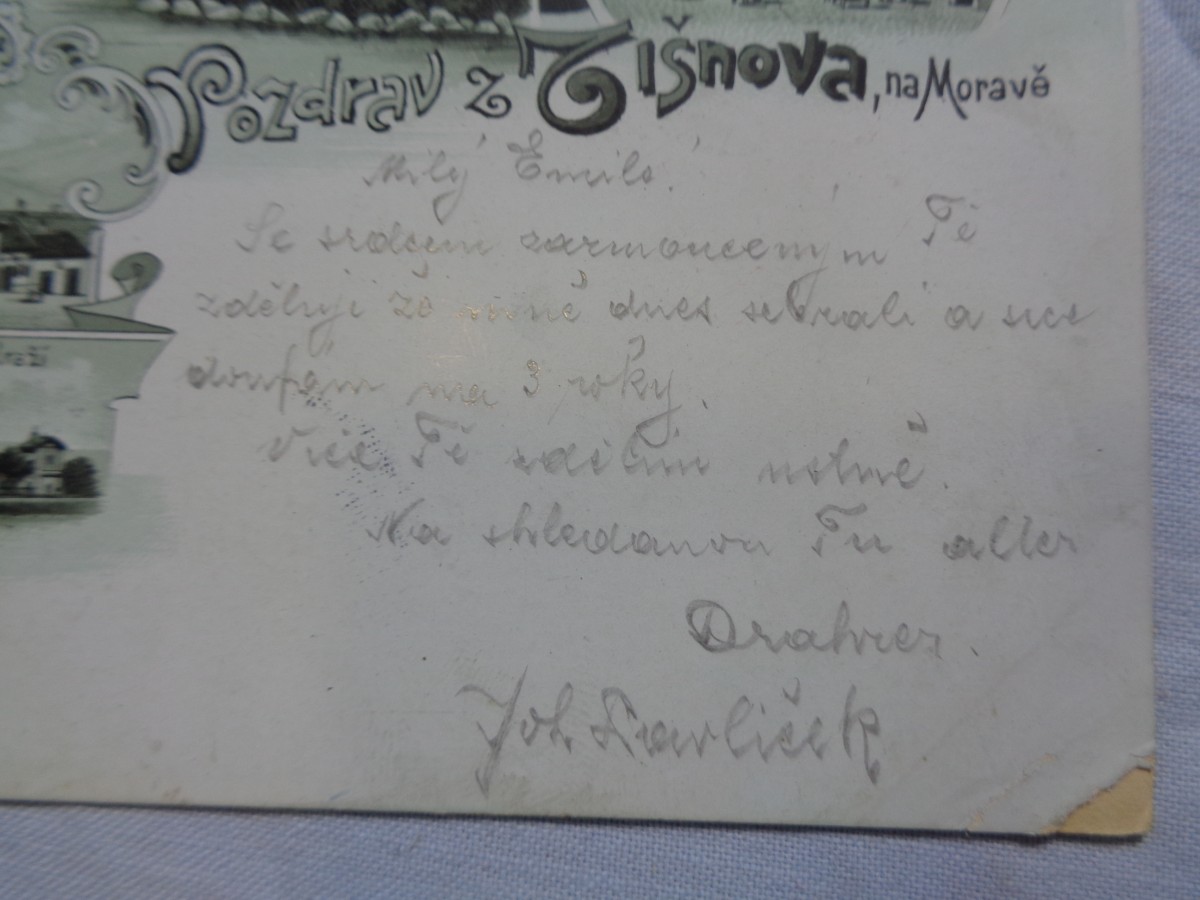 Pozdrav z Tišnova, na Moravě
Milý Emile!
Se srdcem zarmouceným Tě
zděluji že mně dnes sebrali a sice
doufám na 3 roky.
Více Tě zdělím ustně.
Na shledanou Tu alter
Joh. Karlíček